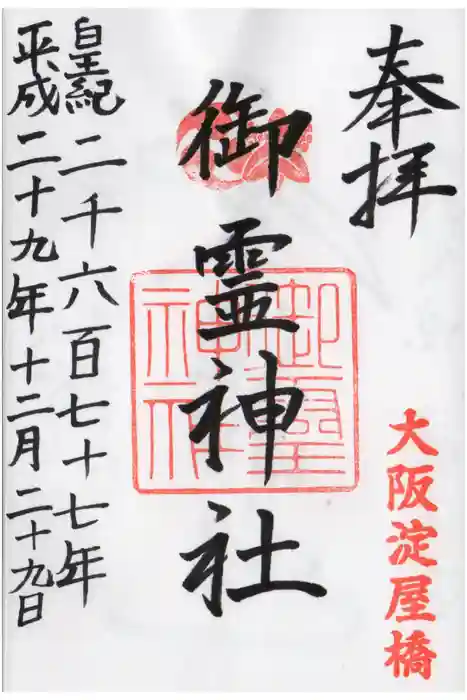 奉拝
大阪淀屋橋
御霊神社
御霊神社
皇紀二千六百七十七年
平成二十九年十二月二十九日